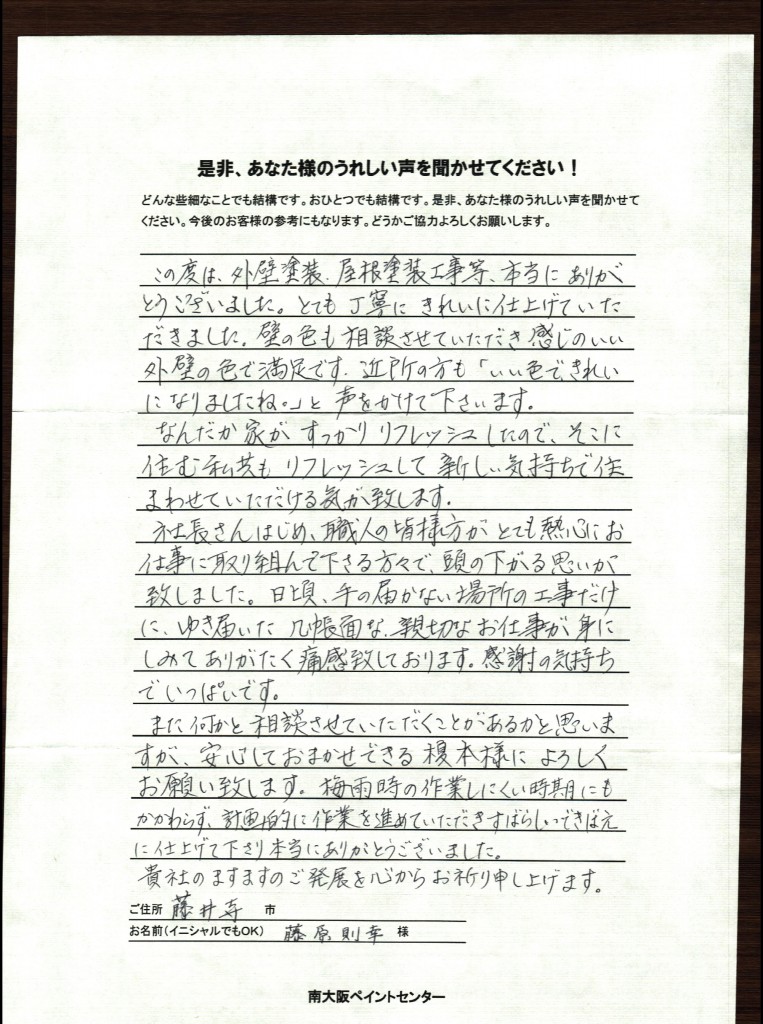 是非、あなた様のうれしい声を聞かせてください!
どんな些細なことでも結構です。おひとつでも結構です。是非、あなた様のうれしい声を聞かせて
ください。今後のお客様の参考にもなります。どうかご協力よろしくお願いします。
この度は、外壁塗装、屋根塗装工事等、本当に ありが
とうございました。とても 丁寧に きれいに仕上げていた
だきました。壁の色も相談させていただき 感じのいい
外壁の色で満足です。近所の方も「いい色できれい
になりましたね。」と 声をかけて下さいます。
なんだか 家が すっかり リフレッシュしたので、そこに
住む私共も リフレッシュして 新しい気持ちで住
まわせていただける気が致します。
社長さんはじめ、職人の皆様方が とても熱心にお
仕事に取り組んで下さる方々で、頭の下がる思いが
致しました。日頃、手の届かない場所の工事だけ
に、ゆき届いた 几帳面な、親切なお仕事が 身に
しみて ありがたく痛感致しております。感謝の気持ち
でいっぱいです。
また何かと 相談させていただくことがあるかと思いま
すが、安心しておまかせできる 榎本様に よろしく
お願い致します。梅雨時の作業しにくい時期にも
かかわらず、計画的に作業を進めていただきすばらしいできばえ
に仕上げて下さり本当にありがとうございました。
貴社のますますのご発展を心からお祈り申し上げます。
ご住所 藤井寺 市
お名前(イニシャルでもOK) 藤原則幸 様
南大阪ペイントセンター